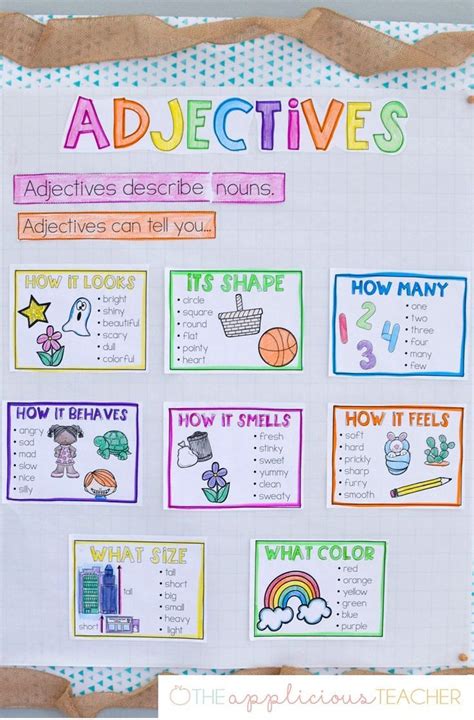 ADJECTIVES
Adjectives describe nouns.
Adjectives can tell you...
HOW IT LOOKS
• bright
• shiny
• beautiful
• scary
• dull
• colorful
ITS SHAPE
• circle
• square
• round
• flat
• pointy
• heart
HOW MANY
1 2 3 4
• one
• two
• three
• four
• many
• few
HOW IT BEHAVES
• angry
• sad
• mad
• slow
• nice
• silly
HOW IT SMELLS
• fresh
• stinky
• sweet
• yummy
• clean
• sweaty
HOW IT FEELS
• soft
• hard
• prickly
• sharp
• furry
• smooth
WHAT SIZE
tall
short
• tall
• short
• big
• small
• heavy
• light
WHAT COLOR
• red
• orange
• yellow
• green
• blue
• purple
THE applicious TEACHER